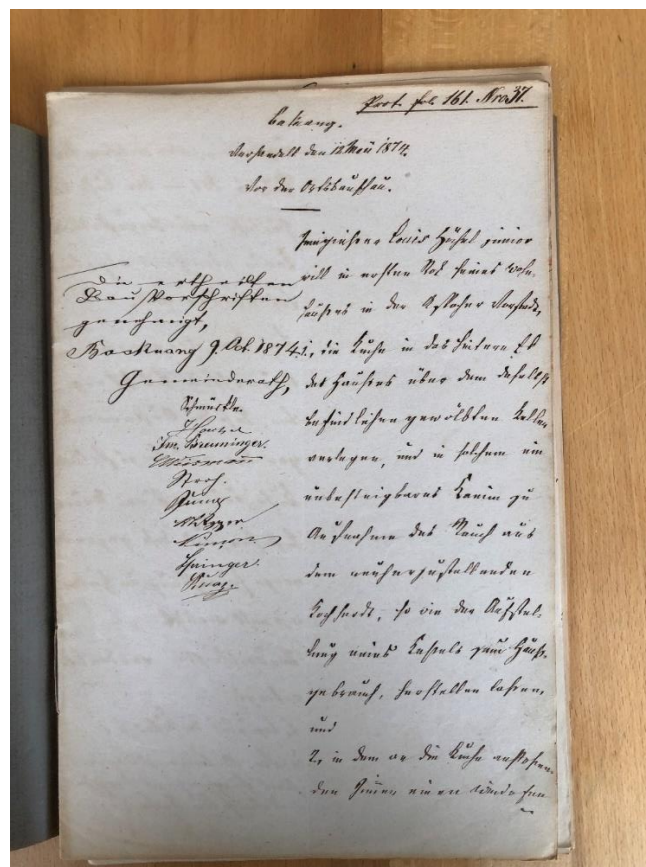 Prot. fol. 161. Nro 37.
Baknang.
Verhandelt den 12 Mai 1874.
Vor der Ortsbauschau.
Louis Höchel junior
will in ersten Stok seines Wohn-
hauses in der Vorstadt,
1., die Küche in das hintere
des Hauses über dem daselbst
befindlichen gewölbten Keller
verlegen, und in solchem ein
unbesteigbares Kamin zu
Aufnahme des Rauch aus
dem neuherzustellenden
Kochherdt, so wie der Aufstel-
lung eines Kessels zum Haus-
gebrauch, herstellen lassen,
und
2., in dem an die Küche anstoßen-
den einen Windofen
die ertheilten
Bauvorschriften
genehmigt,
Backnang 9. Oct. 1874
Gemeinderath,
Schmükle.
Breuninger.
Stroh.